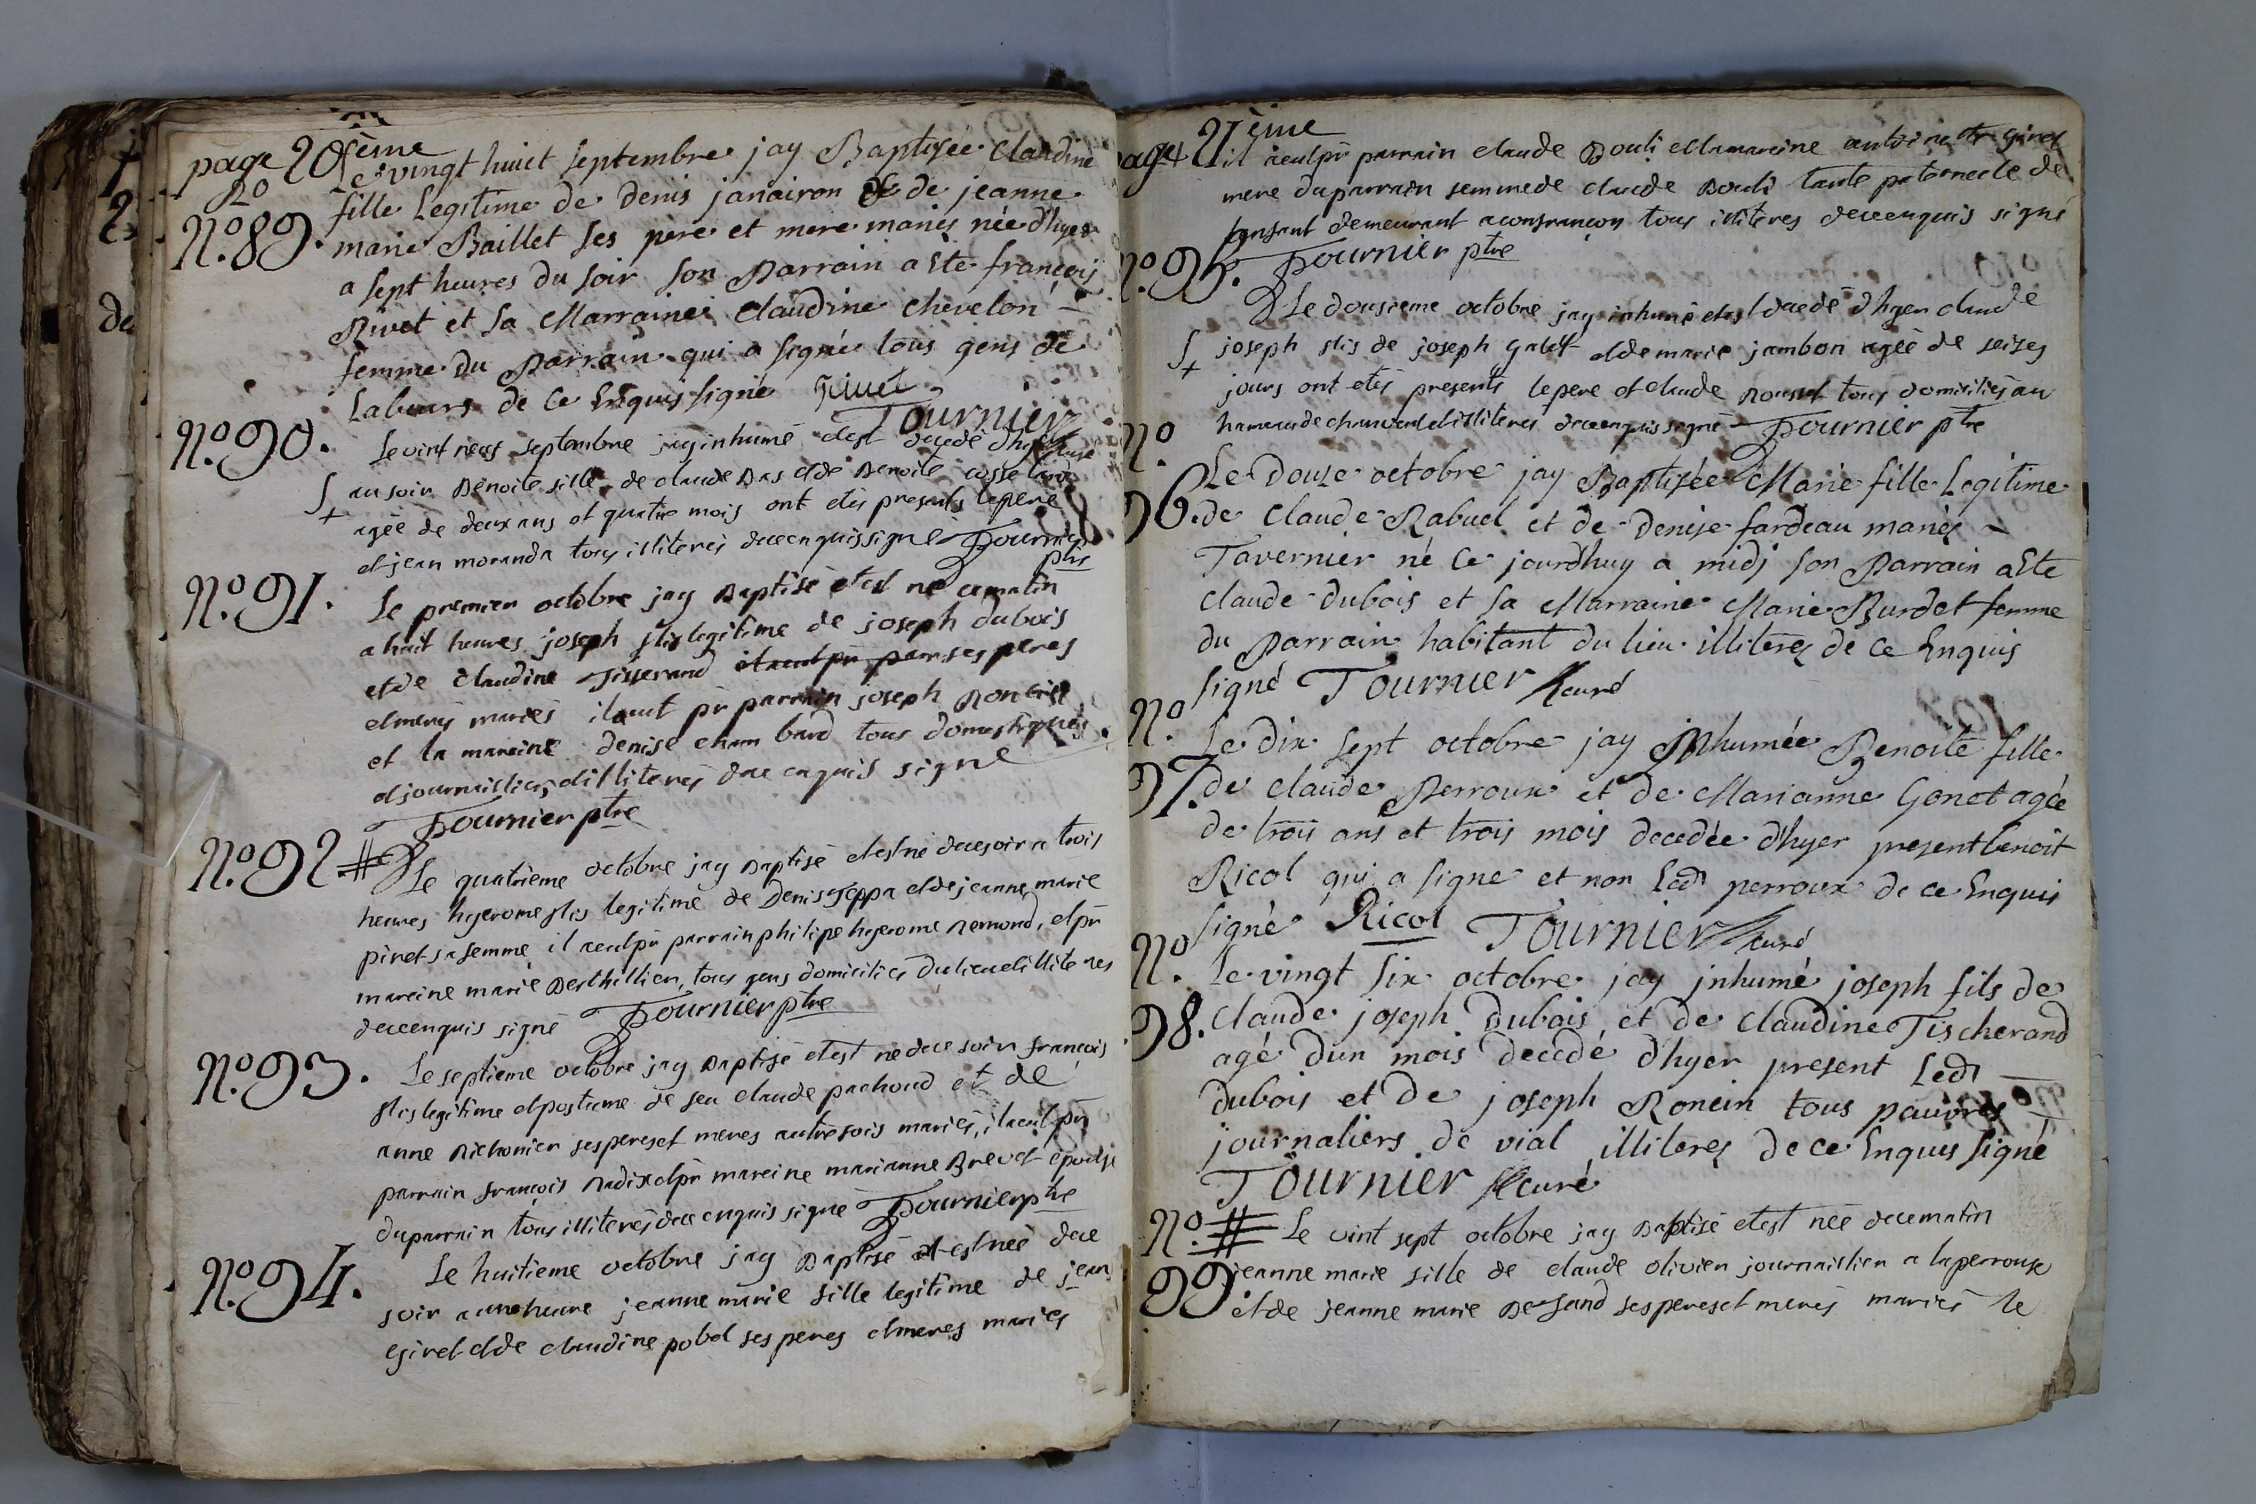 page 20ème
Le vingt huiet septembre jay Baptisée Claudine
N°. 89. fille Legitime de denis janairon & de jeanne
marie Baillet ses pere et mere mariés née d'hyer
a sept heures du soir son Parrain a Eté françois
Rivet et sa Marraine Claudine chevelon
femme du Parrain qui a signée tous gens de
Labeurs de ce Enquis signé Rivet
Tournier
N°. 90. Le vint neuf septembre jay inhumé et est decedé d'hyer
au soir Benoite fille de claude Bas et de Benoite
agée de deux ans et quatre mois ont etés presents le pere
et jean moranda tous illiterés de ce enquis signé Tournier
ptre
N°. 91. Le premier octobre jay Baptisé et est né ce matin
a huit heures joseph fils legitime de joseph dubois
et de Claudine Tisserand et a eut pr parr ses peres
et meres mariés il a eut pr parrain joseph Roncin
et la mareine denise cham bard tous domestiques
et journailliers et illiterés de ce enquis signé
Tournier ptre
N°. 92 # Le quatrieme octobre jay Baptisé et est né de ce soir a trois
heures hyerome fils legitime de Denis Jeppa et de jeanne marie
piret sa femme il a eut pr parrain philipe hyerome Remond, et pr
mareine marie Berthillier, tous gens domiciliés du lieu et illiterés
de ce enquis signé Tournier ptre
N°. 93. Le septieme octobre jay Baptisé et est né de ce soir françois
fils legitime et postume de feu claude pachoud et de
anne Richonier ses peres et meres autrefois mariés, il a eut pr
parrain françois Radix et pr mareine marianne Brevet epouse
du parrain tous illiterés de ce enquis signé Tournier ptre
N°. 94. Le huitieme octobre jay Baptisé et est née de ce
soir a une heure jeanne marie fille legitime de jean
Giret et de claudine pobel ses peres et meres mariés
page 21ème
il a eut pr parrain claude Bouti et la mareine antoinette Giret
mere du parrain femme de claude Bouti tante paternele de
lenfant demeurant a confrançon tous illiterés de ce enquis signé
Tournier ptre
N°. 95. Le dousieme octobre jay inhumé et est decedé d'hyer claude
joseph fils de joseph Galet et de marie jambon agée de seises
jours ont etés presents le pere et claude Rousset tous domiciliés au
hameau de et illiterés de ce enquis signé Tournier ptre
N°. 96. Le Douze octobre jay Baptisée Marie fille Legitime
de Claude Rabuel et de Denise fardeau mariés
Tavernier né ce jourdhuy a midj son Parrain a Eté
claude dubois et sa Marraine Marie Burdet femme
du Parrain habitant du lieu illiterez de ce Enquis
signé Tournier curé
N°. 97. Le dix sept octobre jay jnhumée Benoite fille
de claude Perroux et de Marianne Gonet agée
de trois ans et trois mois decedée d'hyer present benoit
Ricol qui a signe et non Ledt perroux de ce Enquis
signé Ricol Tournier curé
N°. 98. Le vingt six octobre jay jnhumé joseph fils de
Claude joseph Dubois, et de claudine Tischerand
agé d'un mois decedé d'hyer present Ledt
dubois et de joseph Ronein tous pauvres
journaliers de vial illiterez de ce Enques signé
Tournier curé
N°. 99. # Le vint sept octobre jay Baptisé et est née de ce matin
jeanne marie fille de claude olivier journaillier a laperrouse
et de jeanne marie Dersand ses peres et meres mariés le